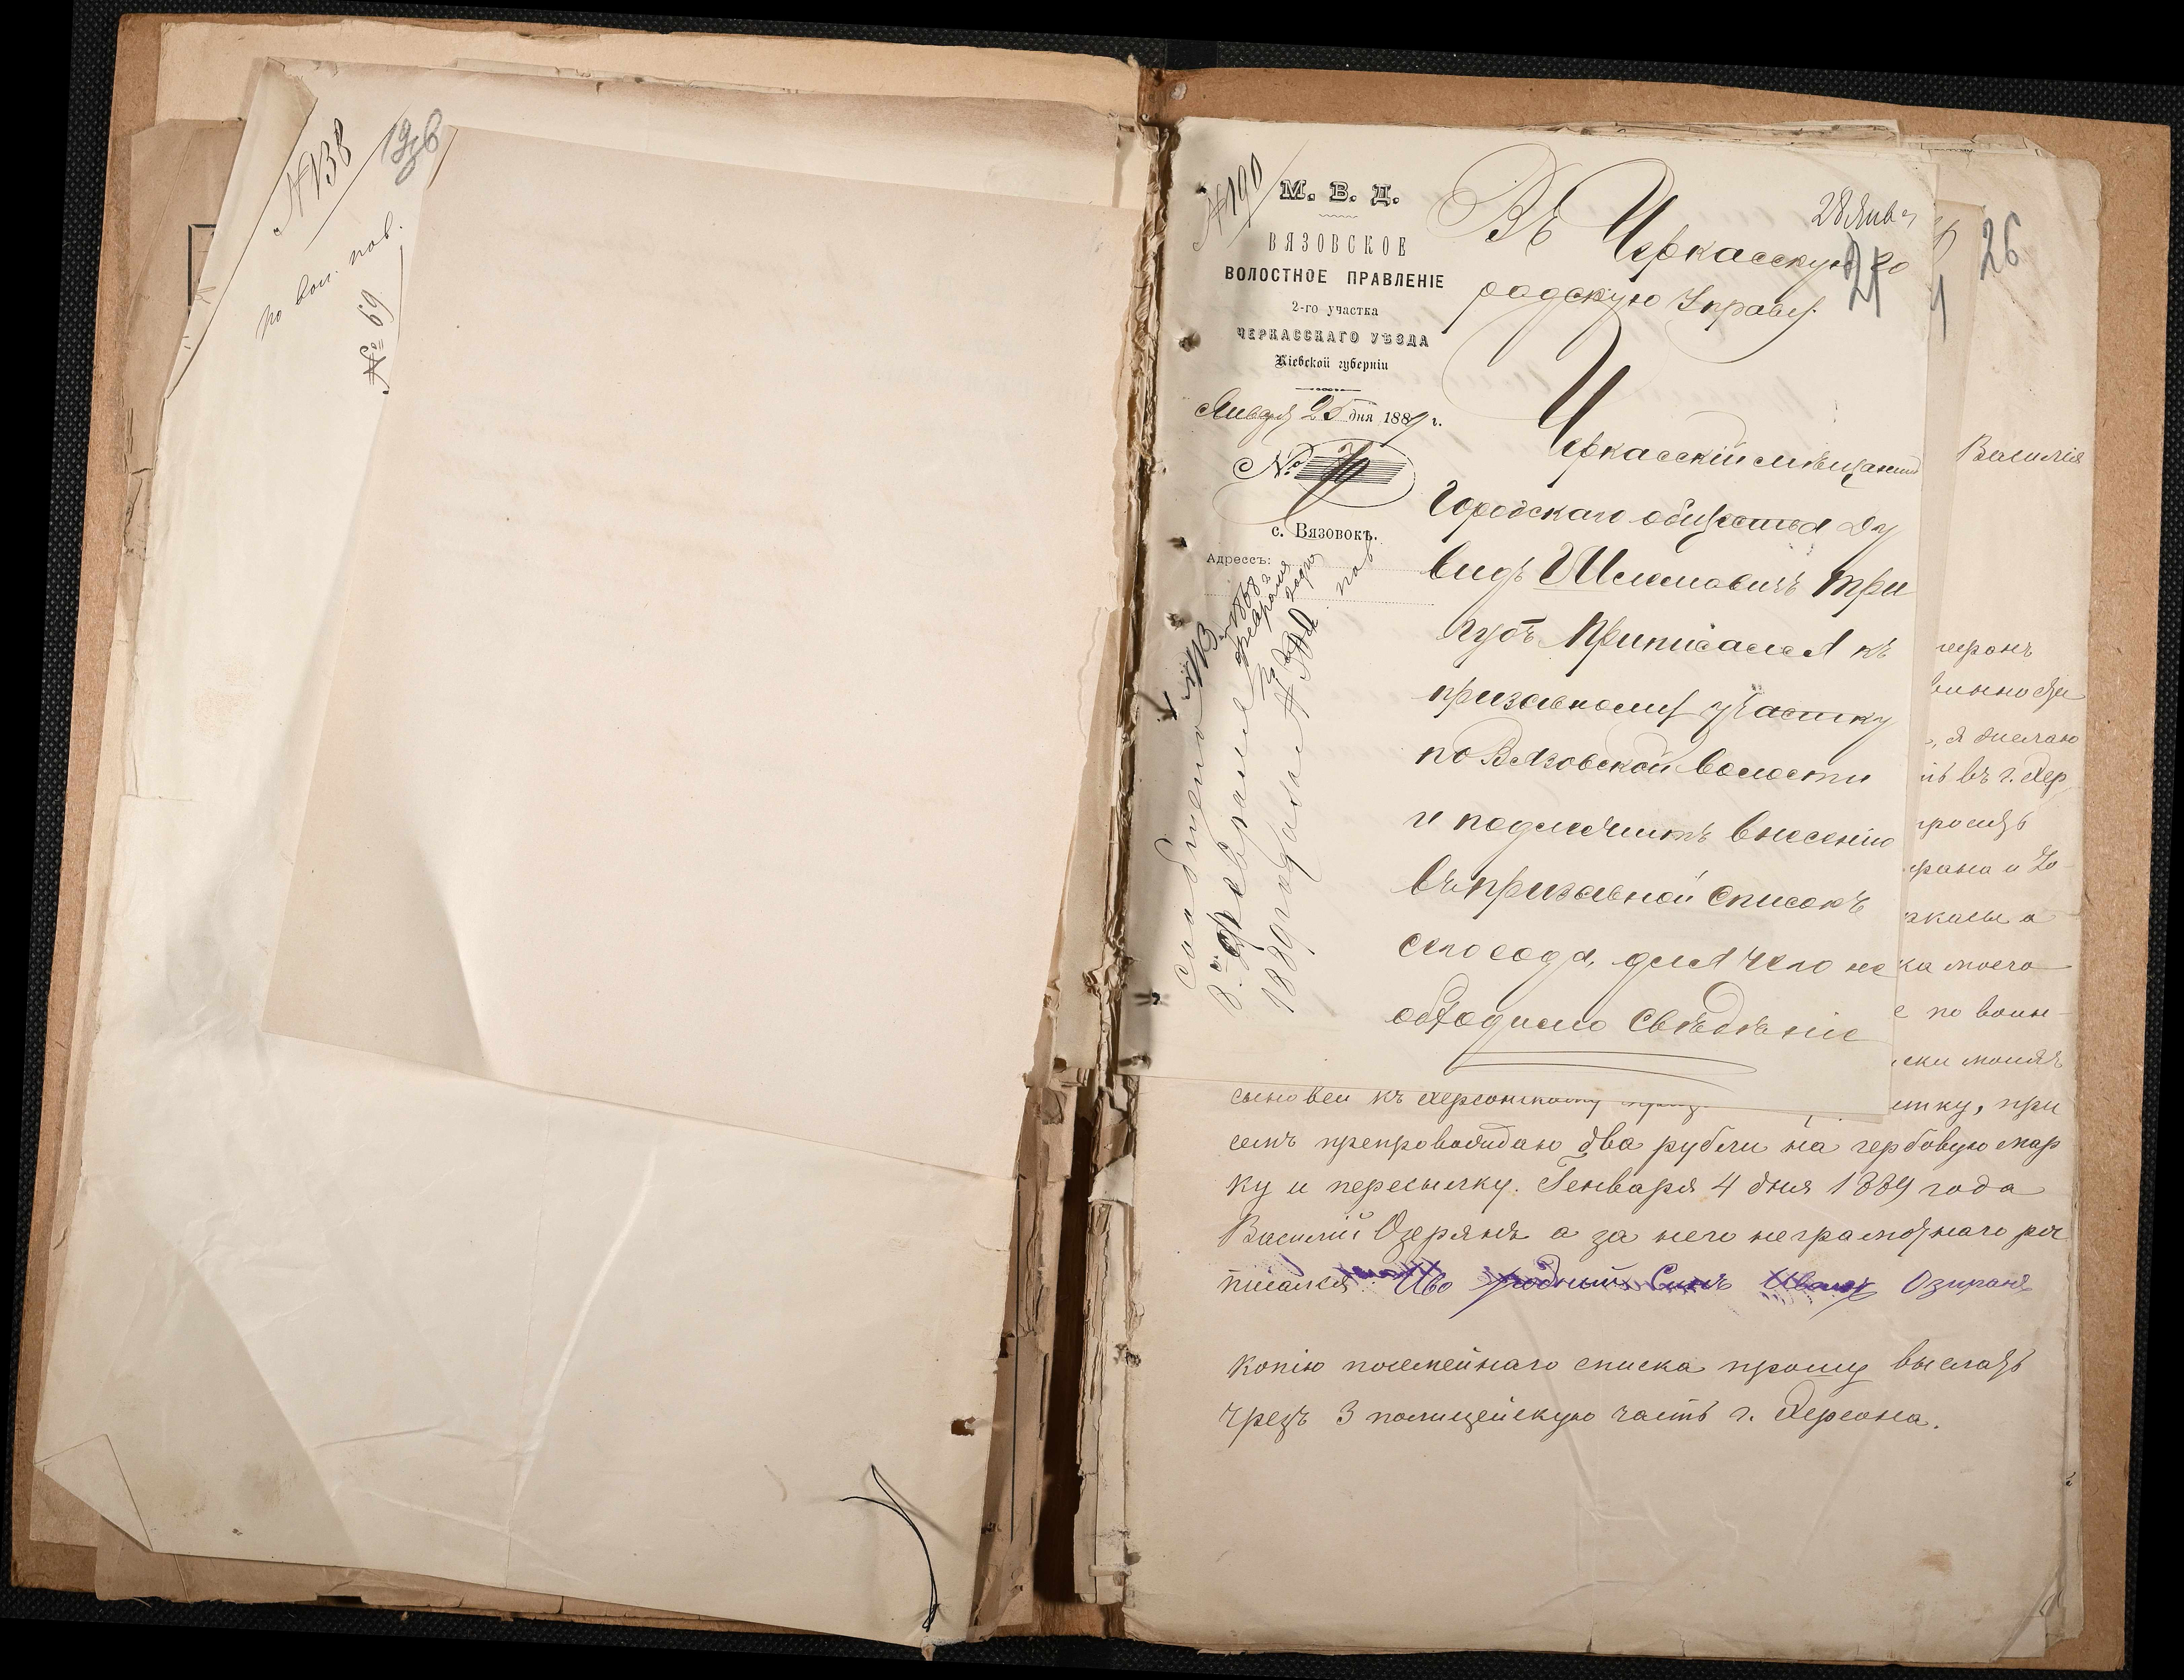 № 138
196
по вои. пов.
№ 69
№ 190
М. В. Д.
ВЯЗОВСКОЕ
ВОЛОСТНОЕ ПРАВЛЕНІЕ
2-го участка
ЧЕРКАССКАГО УѢЗДА
Кіевской губерніи
Января 25 дня 1889 г.
№
с. Вязовокъ.
Адрессъ:
28 Янва
Въ Черкасскую Го
родскую Управу.
21
26
Черкасскій мѣщанинъ
Городскаго общества Ду
видъ Шлемовичъ Три
губъ приписался къ
призывному участку
по Вязовской волости
и подлежитъ внесенію
въ призывной списокъ
сего года, для чего не
обходимо свѣдѣніе
сообщено
8 февраля
1889 года
пов
Василія
, я желаю
въ г. Хер
ка моего
по воин-
сыновей къ Херсонскому
стку, при
семъ препровождаю два рубли на гербовую мар
ку и пересылку. Генваря 4 дня 1889 года
Василій Озерянъ а за него неграмотнаго рос
писался Иво родный Сынъ Иванъ Озиранъ
Копію посемейнаго списка прошу выслать
чрезъ 3 полицейскую часть г. Херсона.